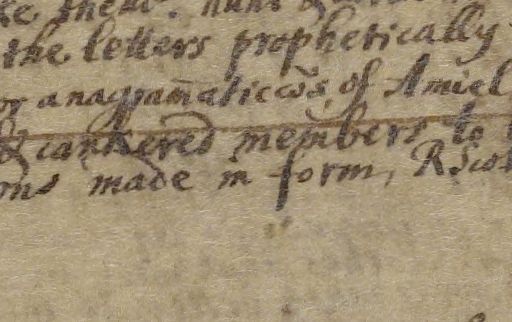 the letters prophetically
or anagram̄aticōs, of Amiel
& cankered members to
ons made in form, RScot